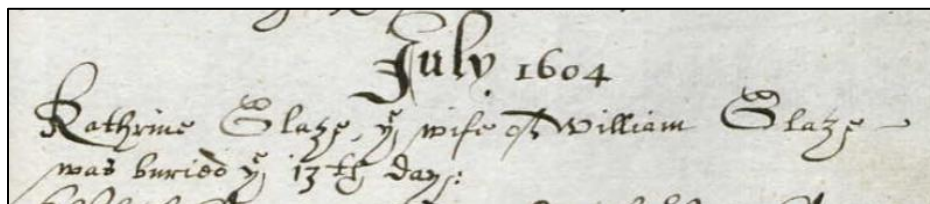 July 1604
Kathrine Glaze, yͤ wife of William Glaze
was buried yͤ 13th day: